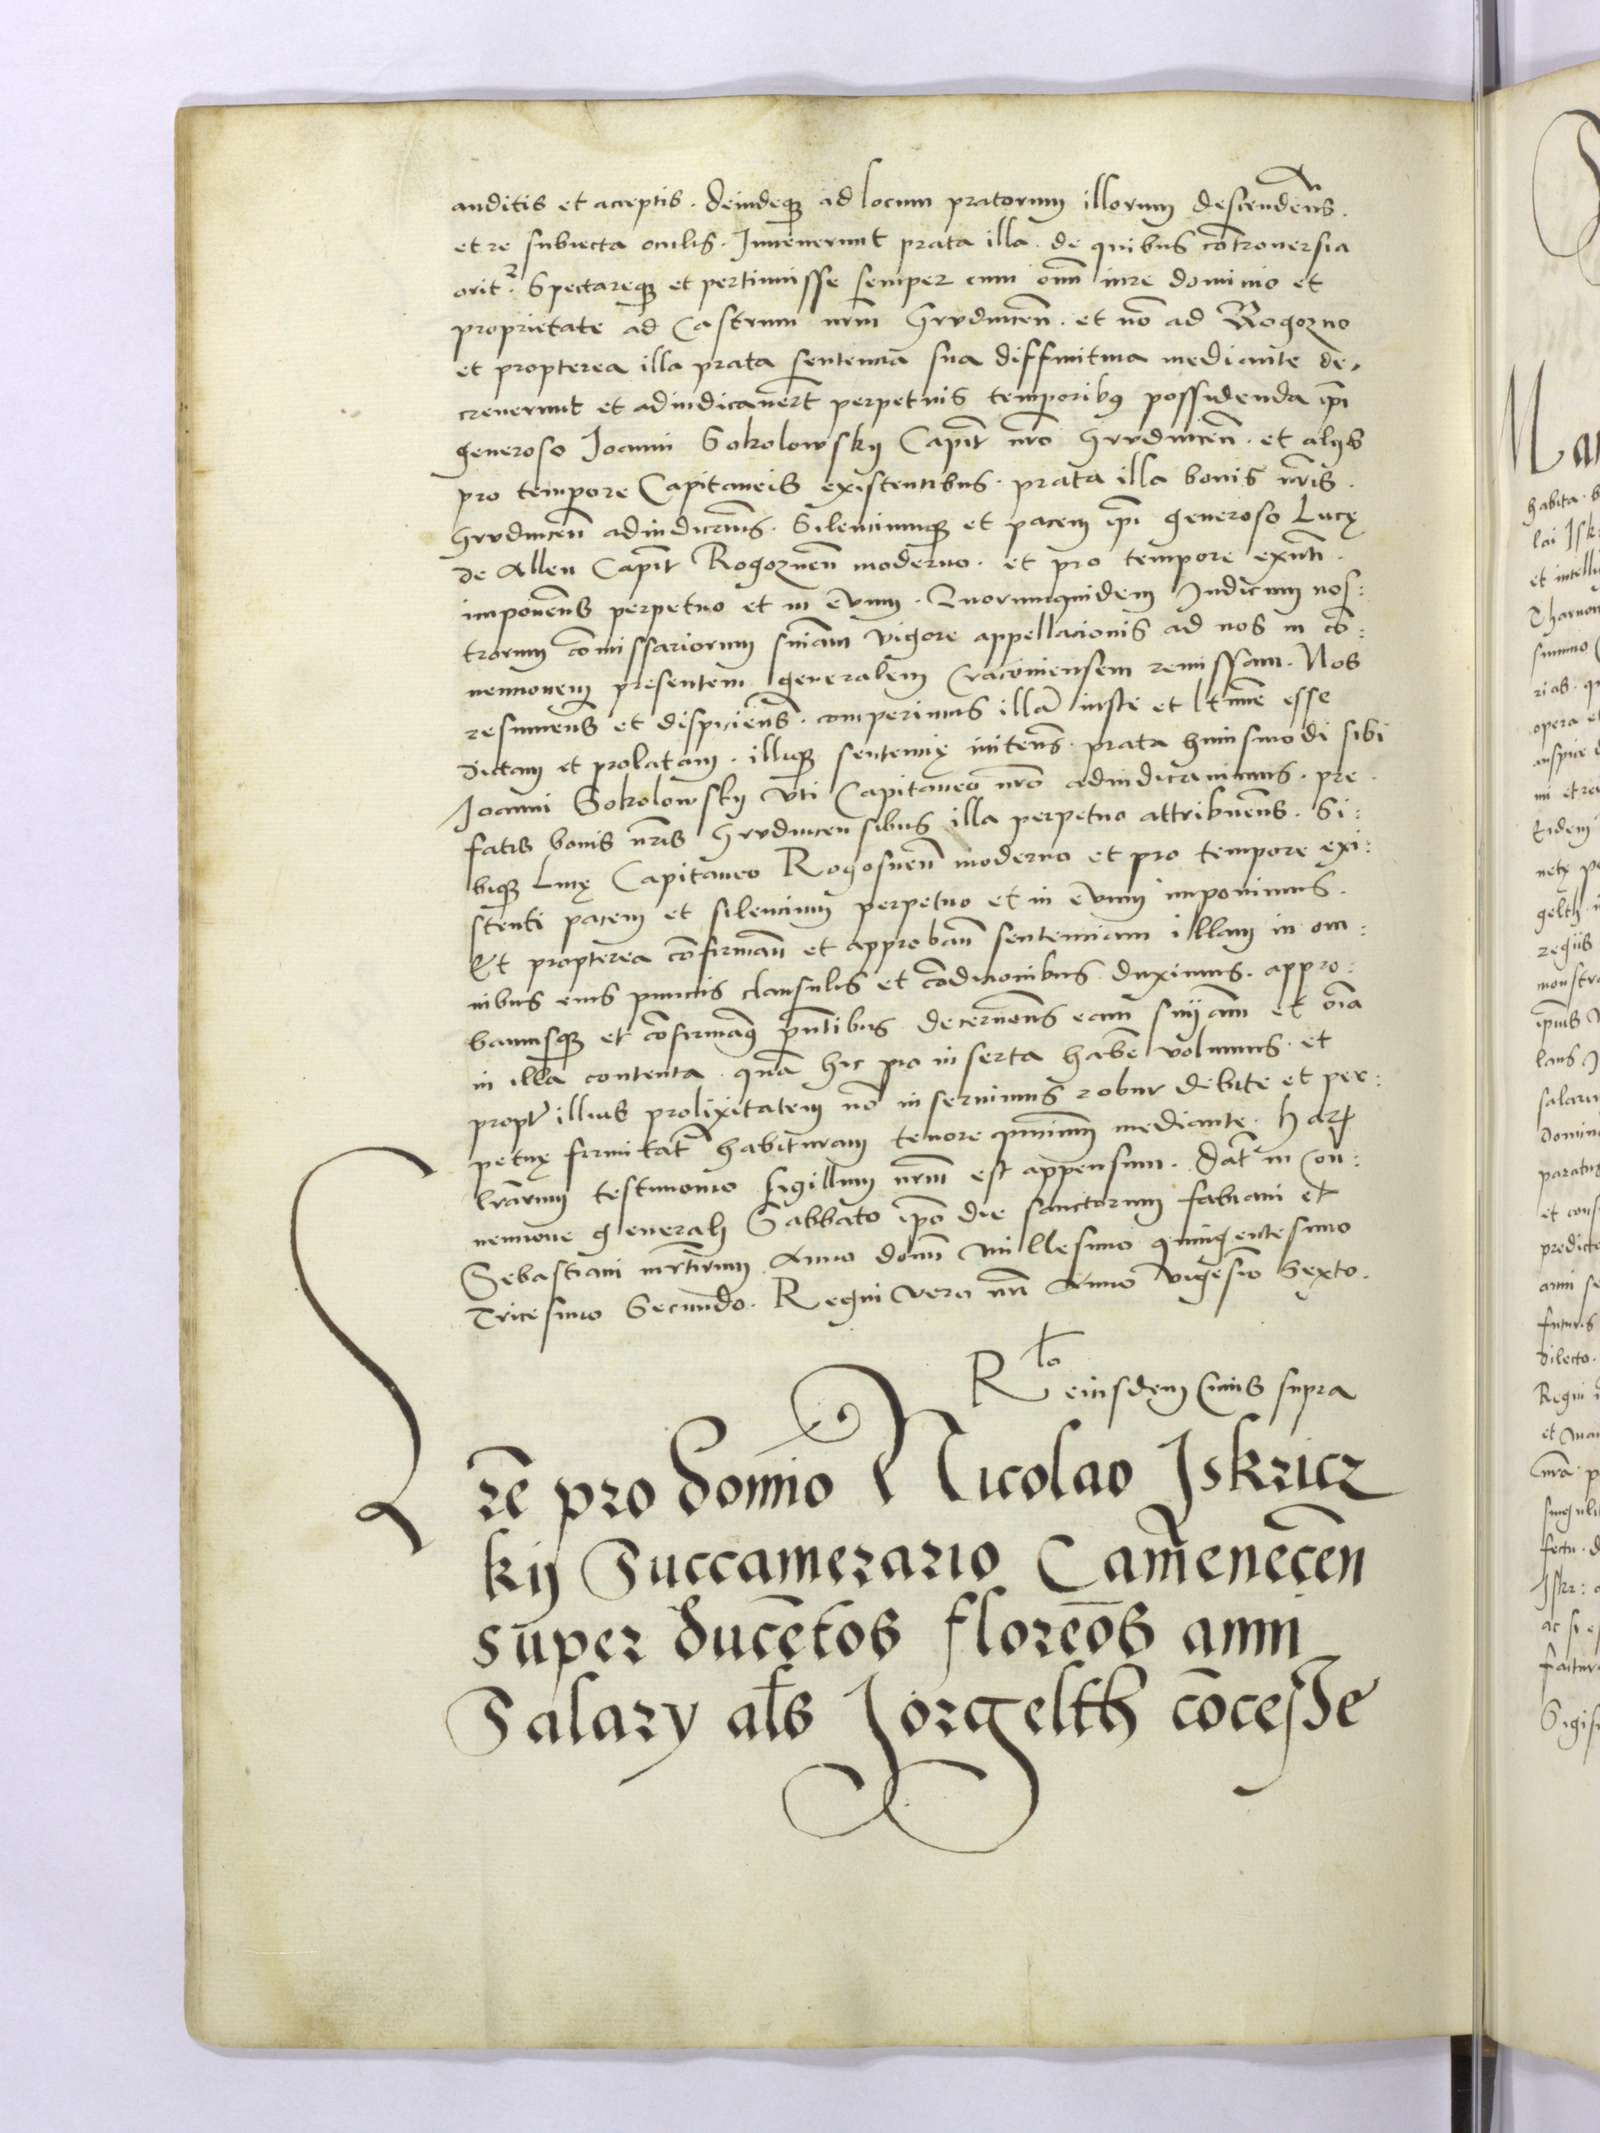 auditis et acceptis. deindeq; ad locum pratorum illorum descendeñs.
et re subiecta oculis. Inuenerunt prata illa. de quibus cõtrouersia
orit̃. Spectareq; et pertinuisse semper cum om̃i iure dominio et
proprietate ad Castrum nr̃m Hrvdnicen̄. et nõ ad Rogozno
et propterea illa prata sentencia sua diffinitiua mediante de,
creuerunt et adiudicauer̃t perpetuis temporibꝰ possidenda ip̄i
generoso Joanni Sokolowsky Capit̃ nr̃o Hrvdnicen̄. et alijs
pro tempore Capitaneis existentibus. prata illa bonis nr̃is.
Hrvdnicen̄ adiudicañs. Silenciumq; et pacem ip̄i generoso Lucę
de Allen Capit̃ Rogoznen̄ moderno. et pro tempore exñti.
imponeñs perpetuo et in ẽvum. Quorumquidem Iudicum nos:
trorum cõmissariorum sñiam vigore appellacionis ad nos in cõ:
uencionem presentem generalem Cracouiensem remissam. Nos
resumeñs et dispicieñs. comperimus illã iuste et ltĩme esse
dictam et prolatam. illiq; sentencię inniteñs. prata huiusmodi sibi
Joanni Sokolowsky vti Capitaneo nr̃o adiudicauimus. pre
fatis bonis nr̃is Hrvdnicensibus illa perpetuo attribueñs. Si:
biq; Lucę Capitaneo Rogosnen̄ moderno et pro tempore exi:
stenti pacem et silencium perpetuo et in ẽvum imponimus.
Et propterea cõfirmañ et approbañ sentenciam illam in om:
nibus eius punctis clausulis et cõdicionibus. duximus. appro:
bamusq; et cõfirmaꝰ pñtibus decerneñs eam sñiam et oĩa
in illa contenta. quã hic pro inserta habẽ volumus. et
propt̃ illius prolixitatem nõ inseruimus robur debite et per:
petuę firmitat̃ habituram tenore pñcium mediante. Harꝝ
lr̃arum testimonio sigillum nr̃m est appensum. Dat̃ in Con:
uencione generali Sabbato ip̄o die sanctorum Fabiani et
Sebastiani mr̃tirum Anno domĩ Millesimo quingentesimo
Tricesimo Secundo. Regni vero nr̃i Anno vigesĩo Sexto.
Rᵗᵒ eiusdem Cuius supra
Lrẽ pro domĩo Nicolao Iskricz
kij Succamerario Camẽnecẽn
super ducẽtos florẽos anni
Salary al̃s Jorgelth cõcesse